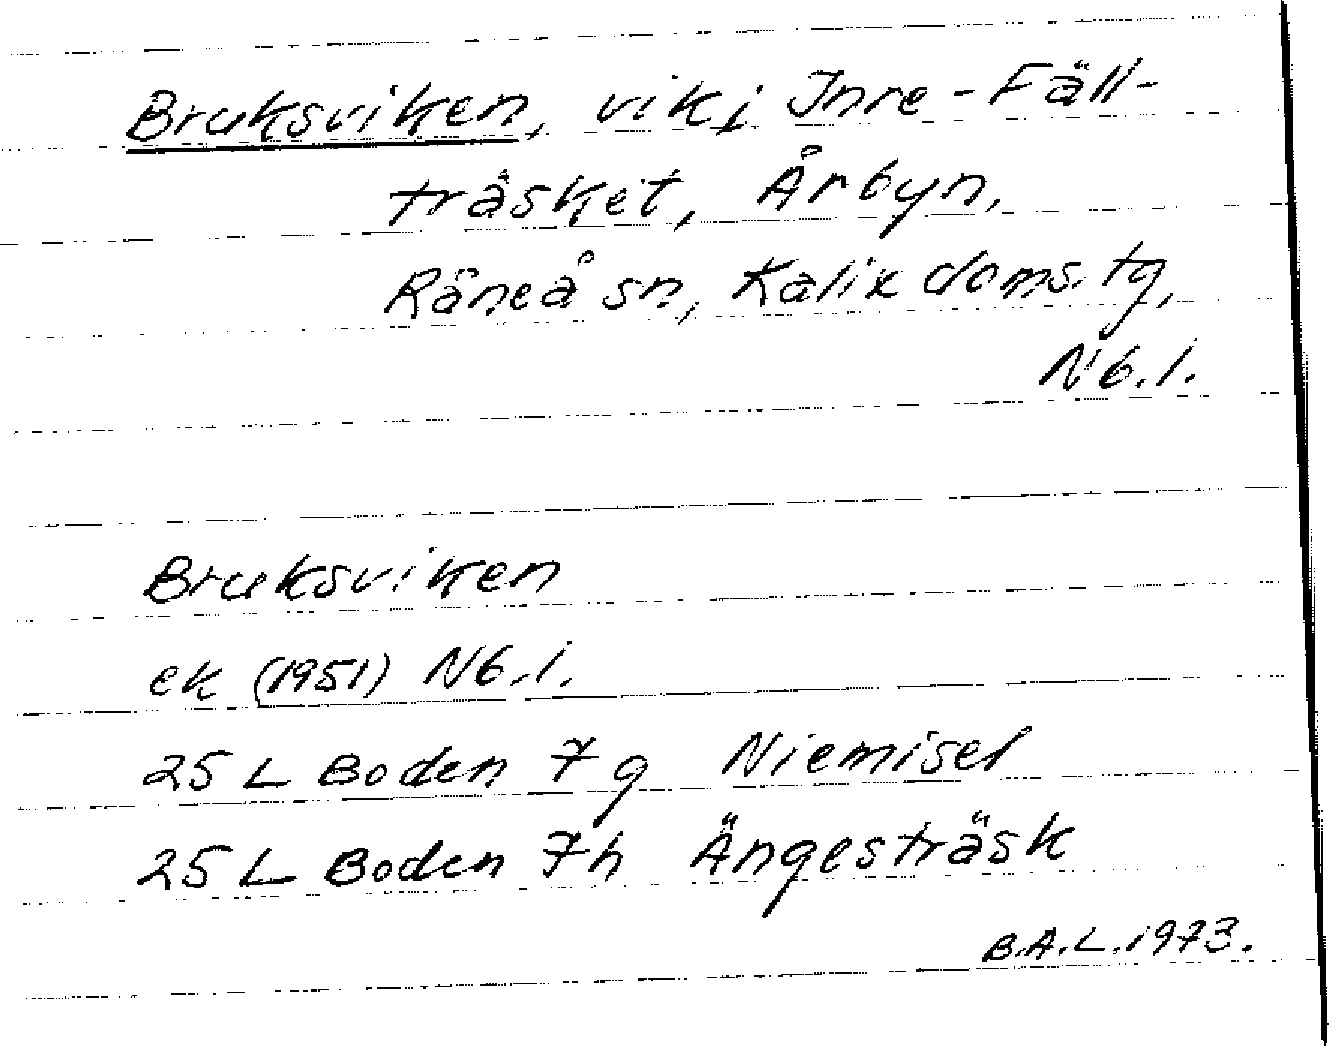 Bruksviken, vik i Inre-Fäll-
träsket, Årbyn,
Råneå sn, Kalix doms. tg,
N b. l.
Bruksviken
ek (1951) N b. l.
25 L Boden 7 g Niemisel
25 L Boden 7 h Ängesträsk
B.A.L. 1973.